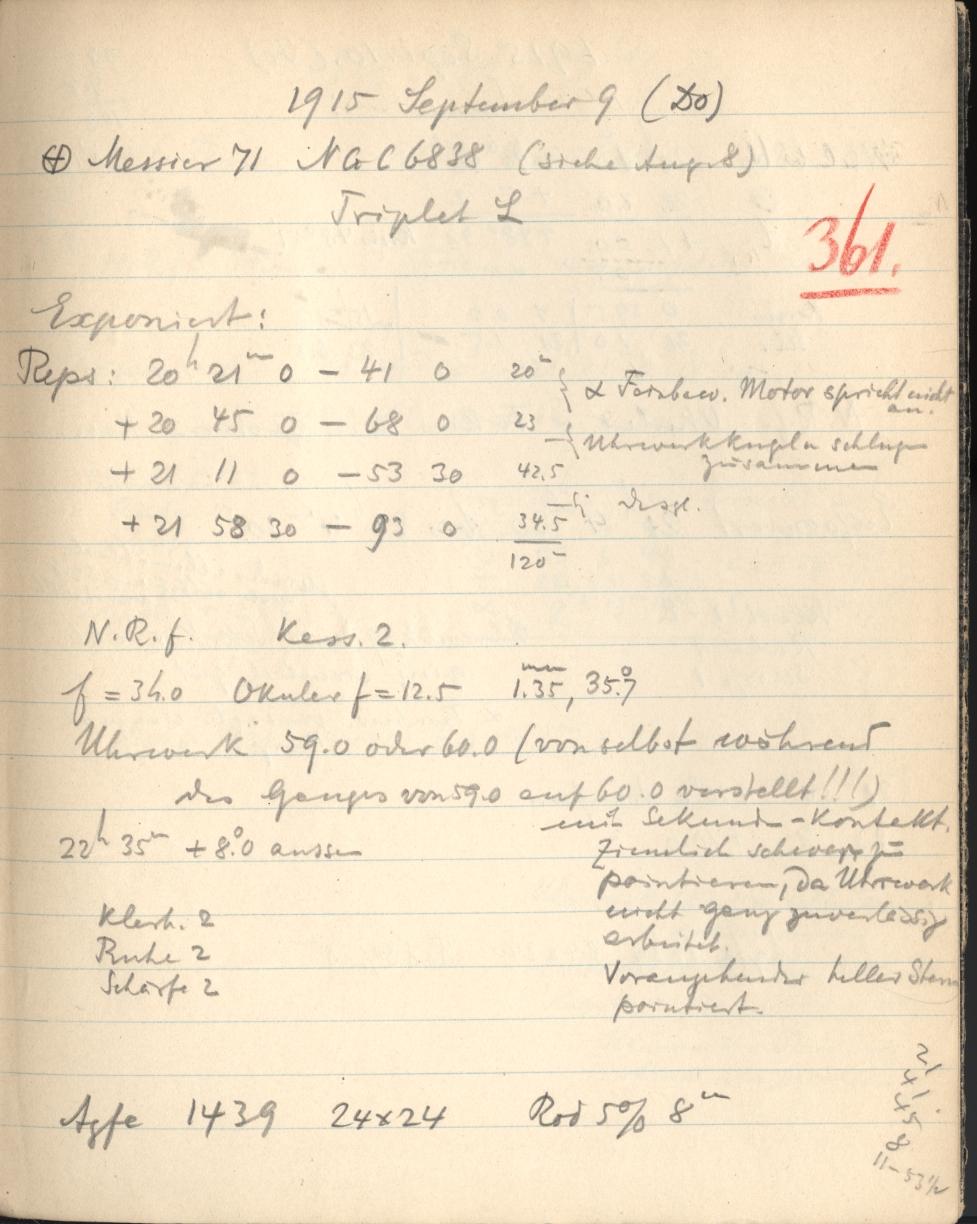 1915 September 9 (Do)
⊕ Messier 71 NGC 6838 (siehe Aug. 8)
Triplet L
361.
Exponiert:
Reps: 20h 21m 0 – 41 0 20m } α Feinbew. Motor spricht nicht an.
+ 20 45 0 – 68 0 23 } Uhrwerkkugeln schlugen zusammen
+ 21 11 0 – 53 30 42.5
+ 21 58 30 – 93 0 34.5 } desgl.
120m
N.R.f. Kass. 2.
f = 34.0 Okular f = 12.5 1.35mm, 35.°7
Uhrwerk 59.0 oder 60.0 (von selbst während
des Ganges von 59.0 auf 60.0 verstellt!!!)
mit Sekund-Kontakt.
22h 35m + 8.°0 aussen
Ziemlich schwer zu
pointieren, da Uhrwerk
nicht ganz zuverlässig
arbeitet.
Vorangehender heller Stern
pointiert.
Klarh. 2
Ruhe 2
Schärfe 2
Agfa 1439 24x24 Rod 5% 8m
21
41.
45
8
11–53½